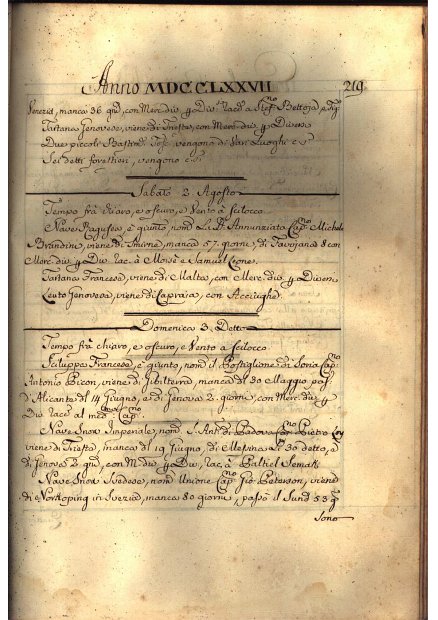 Anno MDCCLXXVII 219
Venezia, manca 36 gni, con Merc. div. p Div. Racc. a Stef. Bettoja, e fig.
Tartana Genovese, viene di Trieste, con Merc. div. p Diversi
Due piccoli Bastim. Tosc. vengono di Vari Luoghi c. S.
Sei detti forestieri, vengono c. S.
Sabato 2 Agosto
Tempo frà chiaro, e oscuro, e Vento à Scilocco
Nave Ragusea, è giunto, nom. La SS. Annunziata Cap.no Michele
Brandini, viene di Smirne, manca 57 giorni, di 8 con
Merc. div. p Div. Rac. à Mosè e Samuel Leone.
Tartana Francese, viene di Malta, con Merc. div. p Diversi
Leuto Genovese, viene di Capraia, con Acciughe
Domenica 3 Detto
Tempo frà chiaro, e oscuro, e Vento à scilocco
Sciluppa Francese, è giunto, nom. il Postiglione di Soria Cap.no
Antonio Bicon, viene di Gibilterra, manca dl 30 Maggio, pas.
d'Alicante dl 14 Giugno, e di Genova 2 giorni, con Merc. div. p
Div. Racc. al med.mo Cap.no
Nave Snow Imperiale, nom. S. Ant. di Padova Cap.no Pietro
viene di Trieste, manca dl 19 Giugno, di Messina dl 30 detto, e
di Genova 2 gni, con M. div. p Div. Rac. à Paltiel Semah
Nave Snow Svedese, nom. Unione Cap.no Gio. Peterson, viene
di Norkoping in Svezia, manca 80 giorni, passò il Sund 53 g.
Sono